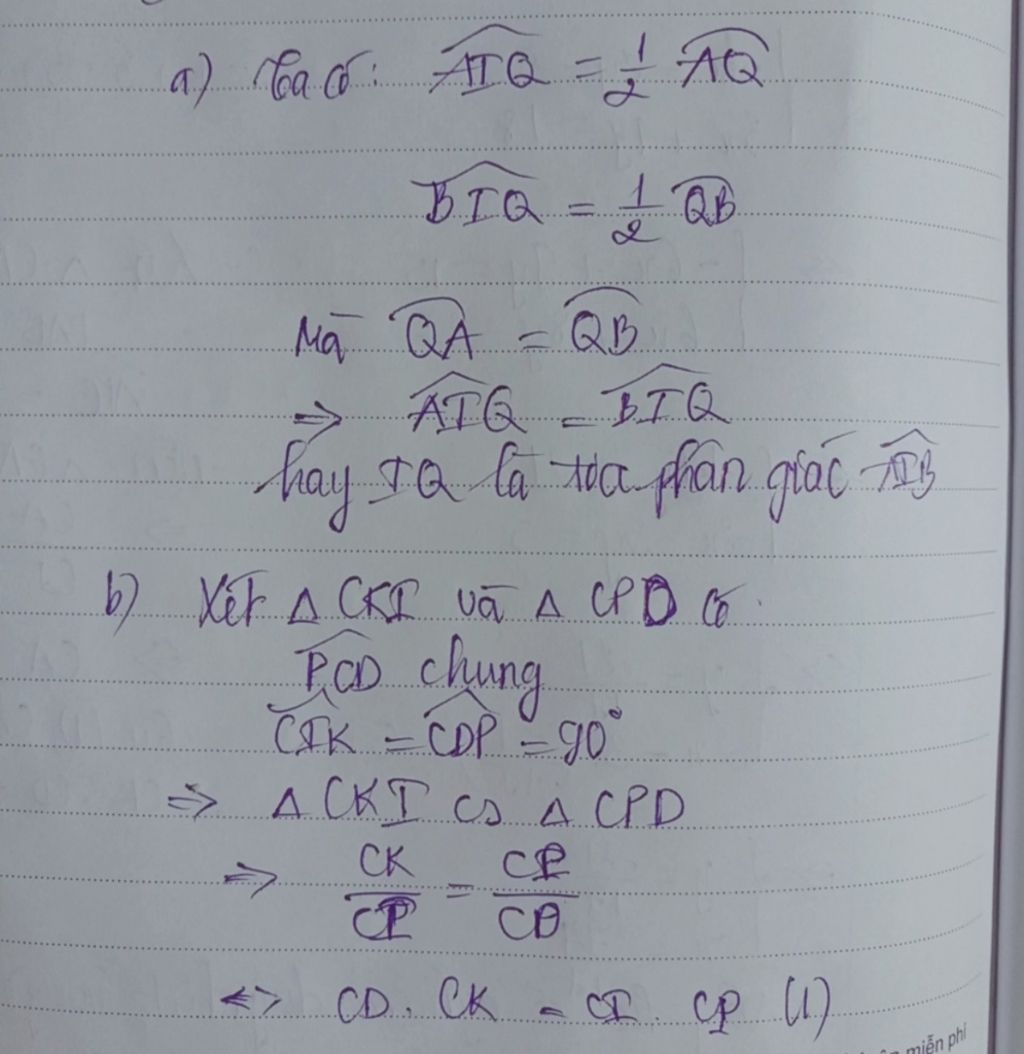 a) Ta có: $\widehat{AIQ} = \frac{1}{2} \overset{\frown}{AQ}$
$\widehat{BIQ} = \frac{1}{2} \overset{\frown}{QB}$
Mà $\overset{\frown}{QA} = \overset{\frown}{QB}$
⇒ $\widehat{AIQ} = \widehat{BIQ}$
hay IQ là tia phân giác $\widehat{AIB}$
b) Xét △ CKI và △ CPD có
$\widehat{PCD}$ chung
$\widehat{CIK} = \widehat{CDP} = 90°$
⇒ △ CKI ∽ △ CPD
⇒ $\frac{CK}{CP} = \frac{CI}{CD}$
<=> CD. CK = CI. CP (1)
miễn phí